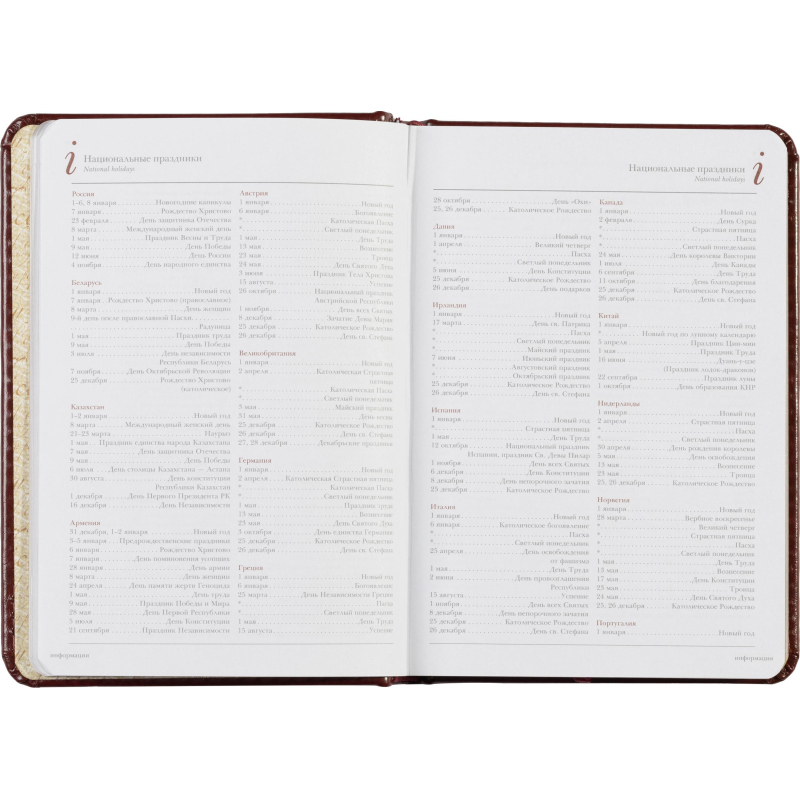 i Национальные праздники
National holidays
Россия
1–6, 8 января Новогодние каникулы
7 января Рождество Христово
23 февраля День защитника Отечества
8 марта Международный женский день
1 мая Праздник Весны и Труда
9 мая День Победы
12 июня День России
4 ноября День народного единства
Беларусь
1 января Новый год
7 января Рождество Христово (православное)
8 марта День женщин
9-й день после православной Пасхи
Радуница
1 мая Праздник труда
9 мая День Победы
3 июля День независимости
Республики Беларусь
7 ноября День Октябрьской Революции
25 декабря Рождество Христово
(католическое)
Казахстан
1–2 января Новый год
8 марта Международный женский день
21–23 марта Наурыз
1 мая Праздник единства народа Казахстана
7 мая День защитника Отечества
9 мая День Победы
6 июля День столицы Казахстана — Астана
30 августа День конституции
Республики Казахстан
1 декабря День Первого Президента РК
16 декабря День Независимости
Армения
31 декабря, 1–2 января Новый год
3–5 января Предрождественские праздники
6 января Рождество Христово
7 января День поминовения усопших
28 января День армии
8 марта День женщин
24 апреля День памяти жертв Геноцида
1 мая День труда
9 мая Праздник Победы и Мира
28 мая День Первой Республики
5 июля День Конституции
21 сентября Праздник Независимости
Австрия
1 января Новый год
6 января Богоявление
* Католическая Пасха
* Светлый понедельник
1 мая День Труда
13 мая Вознесение
23 мая Троица
24 мая День Святого Духа
3 июня Праздник Тела Христова
15 августа Успение
26 октября Национальный праздник
Австрийской Республики
1 ноября День всех Святых
8 декабря Зачатие Девы Марии
25 декабря Католическое Рождество
26 декабря День св. Стефана
Великобритания
1 января Новый год
2 апреля Католическая Страстная
пятница
* Католическая Пасха
* Светлый понедельник
3 мая Майский праздник
31 мая День весны
25 декабря Католическое Рождество
26 декабря День св. Стефана
27, 28 декабря Декабрьские праздники
Германия
1 января Новый год
2 апреля Католическая Страстная пятница
* Католическая Пасха
* Светлый понедельник
1 мая Праздник труда
13 мая Вознесение
23 мая День Святого Духа
3 октября День единства Германии
25 декабря Католическое Рождество
26 декабря День св. Стефана
Греция
1 января Новый год
6 января Богоявление
25 марта День Независимости Греции
* Пасха
* Светлый понедельник
1 мая День Труда
15 августа Успение
информация
Национальные праздники i
National holidays
28 октября День «Охи»
25, 26 декабря Католическое Рождество
Дания
1 января Новый год
1 апреля Великий четверг
* Пасха
* Светлый понедельник
5 июня День Конституции
25 декабря Католическое Рождество
26 декабря День подарков
Ирландия
1 января Новый год
17 марта День св. Патрика
* Пасха
* Светлый понедельник
* Майский праздник
7 июня Июньский праздник
* Августовский праздник
* Октябрьский праздник
25 декабря Католическое Рождество
26 декабря День св. Стефана
Испания
1 января Новый год
* Страстная пятница
1 мая День Труда
12 октября Национальный праздник
Испании, праздник Св. Девы Пилар
1 ноября День всех Святых
6 декабря День Конституции
8 декабря День непорочного зачатия
25 декабря Католическое Рождество
Италия
1 января Новый год
6 января Католическое богоявление
* Пасха
* Светлый понедельник
25 апреля День освобождения
от фашизма
1 мая День Труда
2 июня День провозглашения
Республики
15 августа Успение
1 ноября День всех Святых
8 декабря День непорочного зачатия
25 декабря Католическое Рождество
26 декабря День св. Стефана
Канада
1 января Новый год
2 февраля День Сурка
* Страстная пятница
* Пасха
* Светлый понедельник
24 мая День королевы Виктории
1 июля День Канады
6 сентября День Труда
11 октября День благодарения
25 декабря Католическое Рождество
26 декабря День св. Стефана
Китай
1 января Новый год
* Новый год по лунному календарю
5 апреля Праздник Цин-мин
1 мая Праздник Труда
16 июня Дуань-у-цзе
(Праздник лодок-драконов)
22 сентября Праздник луны
1 октября День образования КНР
Нидерланды
1 января Новый год
2 апреля Страстная пятница
* Пасха
* Светлый понедельник
30 апреля День рождения королевы
5 мая День освобождения
13 мая Вознесение
23 мая Троица
25, 26 декабря Католическое Рождество
Норвегия
1 января Новый год
28 марта Вербное воскресенье
* Великий четверг
* Страстная пятница
* Пасха
* Светлый понедельник
1 мая День Труда
13 мая Вознесение
17 мая День Конституции
23 мая Троица
24 мая День Святого Духа
25, 26 декабря Католическое Рождество
Португалия
1 января Новый год
информация